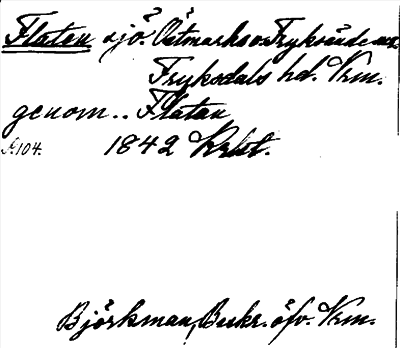 Flaten sjö. Östmarks o. Fryksände snr.
Fryksdals hd. Vrm.
genom .. Flatan
s. 104. 1842 Krbt.
Björkman, Beskr. öfv. Vrm.